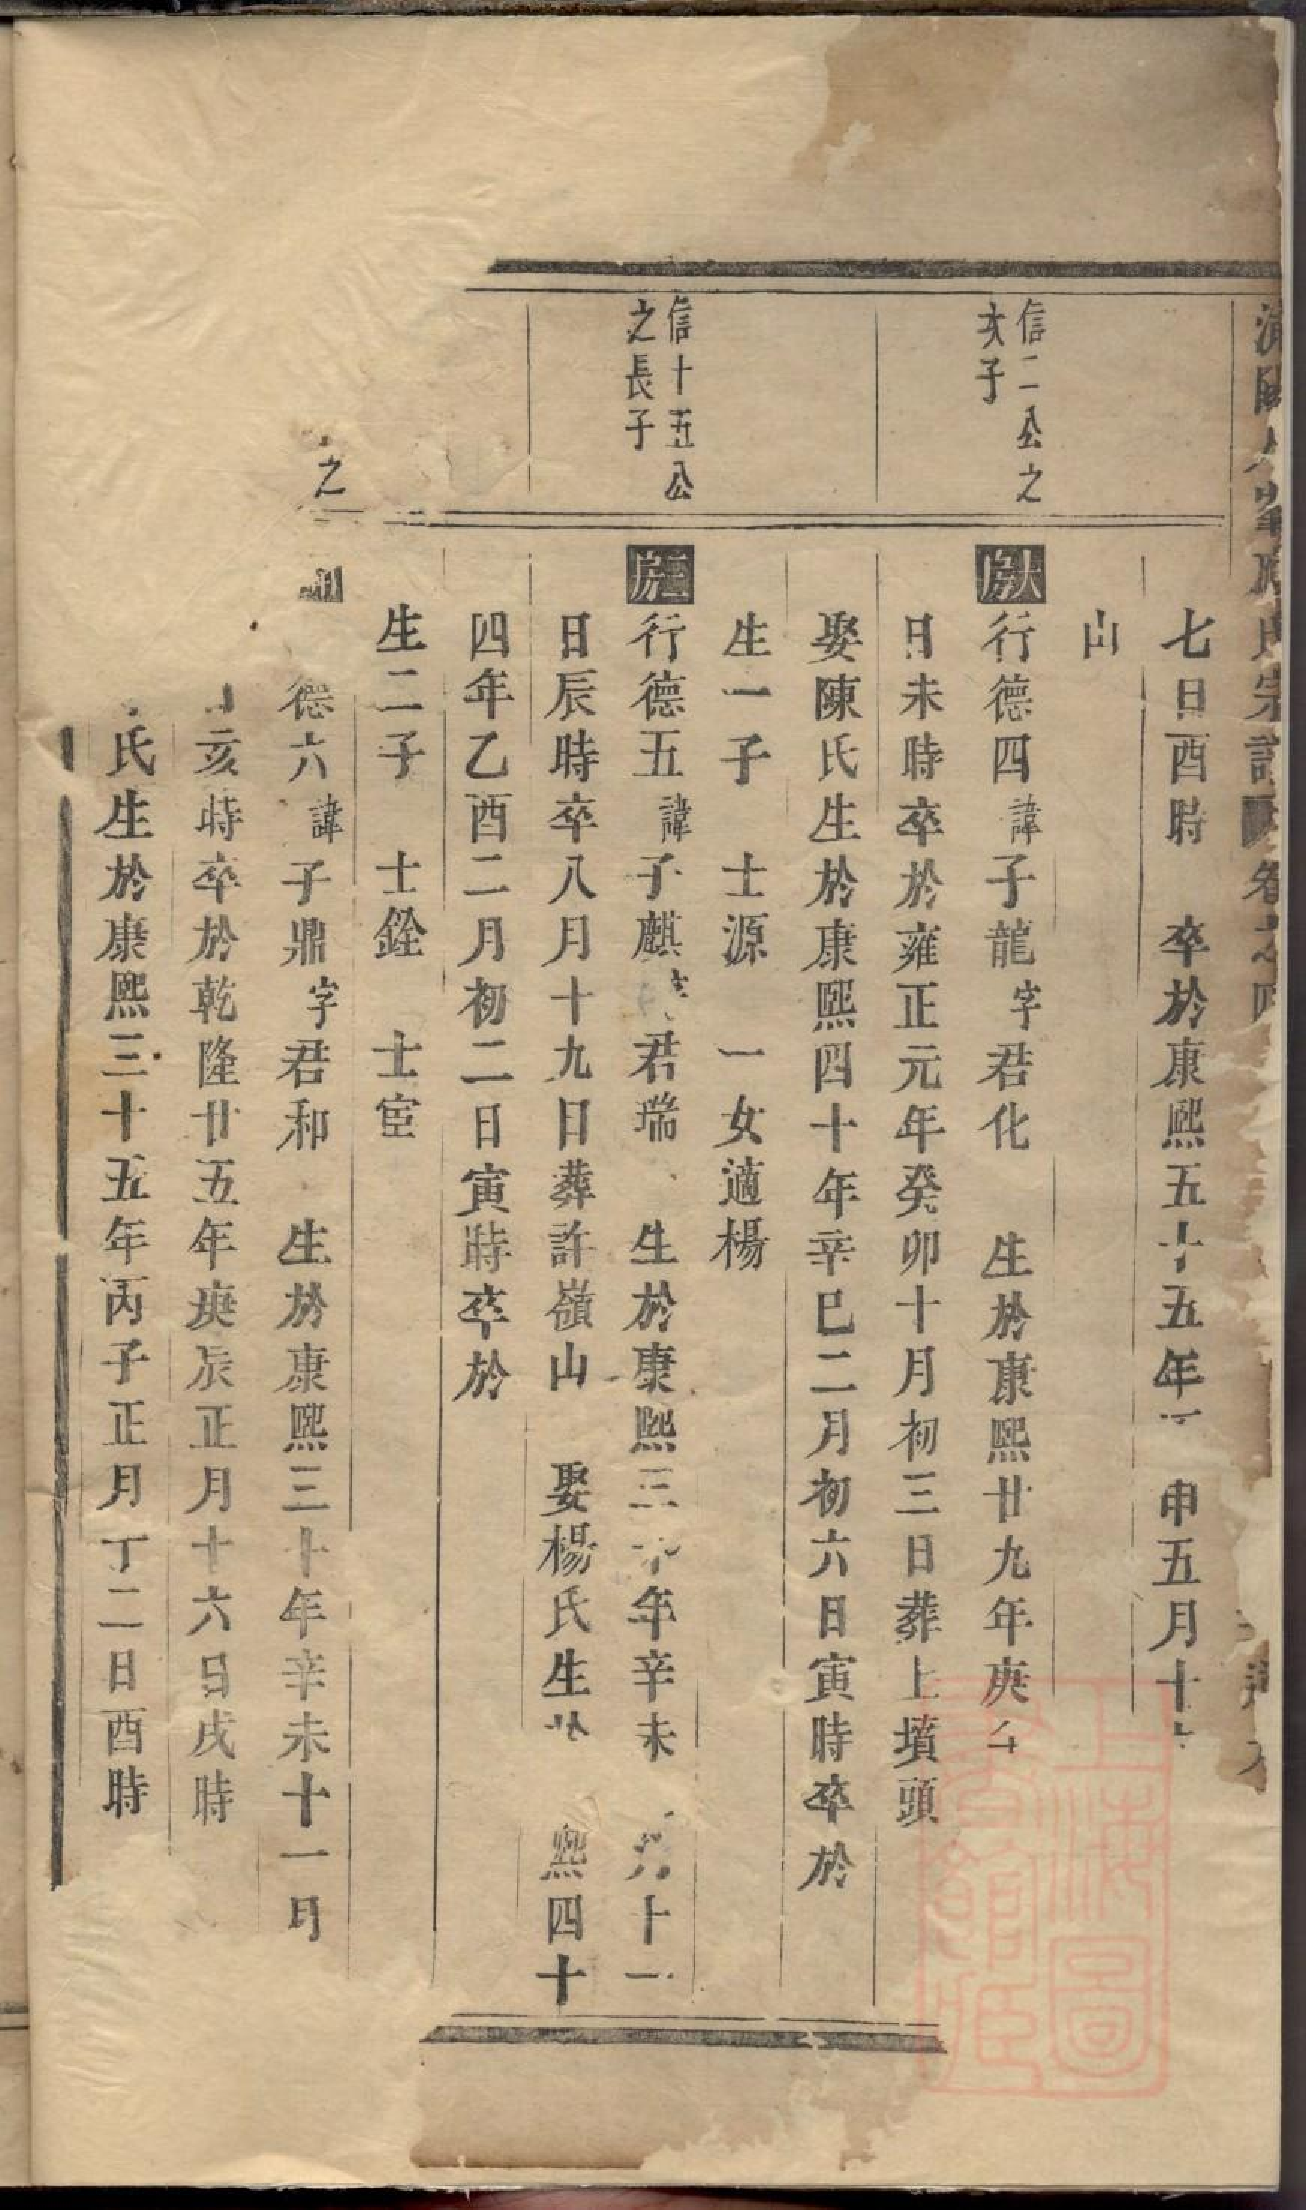 宗譜 卷之四
七日酉時 卒於康熙五十五年 申五月十
山
信二公之
次子
大房 行德四諱子龍字君化 生於康熙廿九年庚午
日未時卒於雍正元年癸卯十月初三日葬上墳頭
娶陳氏生於康熙四十年辛巳二月初六日寅時卒於
生一子 士源 一女適楊
信十五公
之長子
三房 行德五諱子麒字君瑞 生於康熙三十年辛未 十一
日辰時卒八月十九日葬許嶺山 娶楊氏生於 熙四十
四年乙酉二月初二日寅時卒於
生二子 士銓 士宦
之
德六諱子鼎字君和 生於康熙三十年辛未十一月
亥時卒於乾隆廿五年庚辰正月十六日戌時
氏生於康熙三十五年丙子正月十二日酉時
上海圖書館藏